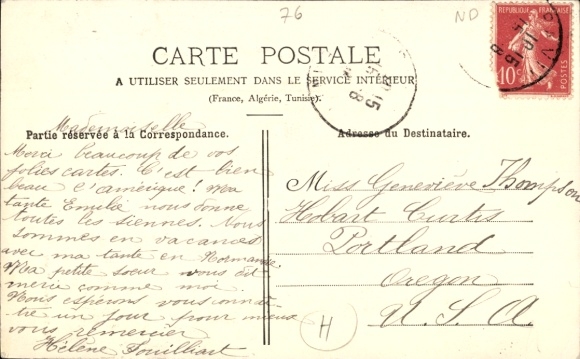 76
ND
REPUBLIQUE FRANÇAISE
10c
POSTES
10-15
15-8
CARTE POSTALE
A UTILISER SEULEMENT DANS LE SERVICE INTÉRIEUR
(France, Algérie, Tunisie).
10-15
15-8
Partie réservée à la Correspondance.
Adresse du Destinataire.
Mademoiselle
Merci beaucoup de vos
jolies cartes. C'est bien
beau l'amérique! Ma
tante Emelie nous donne
toutes les siennes. Nous
sommes en vacances
avec ma tante en Normandie.
Ma petite soeur vous dit
merci comme moi.
Nous espérons vous connaî-
tre un jour pour mieux
vous remercier
Hélène
Miss Geneviève Thompson
Hobart Curtis
Portland
Oregon
U.S.A.
H